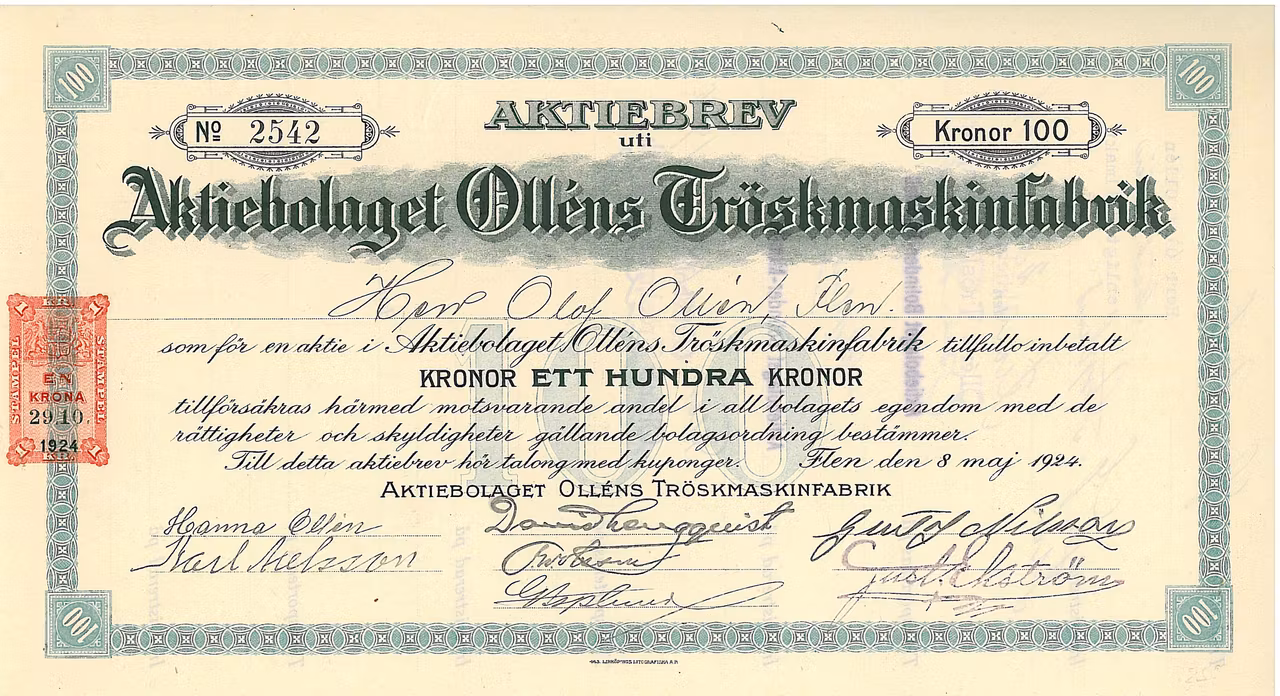 100
100
AKTIEBREV
No 2542
Kronor 100
uti
Aktiebolaget Olléns Tröskmaskinfabrik
Herr Olof Ollén, Flen.
som för en aktie i Aktiebolaget Olléns Tröskmaskinfabrik tillfullo inbetalt
KRONOR ETT HUNDRA KRONOR
tillförsäkras härmed motsvarande andel i all bolagets egendom med de
rättigheter och skyldigheter gällande bolagsordning bestämmer.
Till detta aktiebrev hör talong med kuponger. Flen den 8 maj 1924.
100
AKTIEBOLAGET OLLÉNS TRÖSKMASKINFABRIK
Hanna Ollén David Lengquist Gustaf Nilsson
Karl Axelsson Gust. Ekström
G Asplund
1 KR 1
STÄMPEL STÄMPEL
EN
KRONA
29.10.
1924
1 KR 1
100
100
LINKÖPINGS LITOGRAFISKA A.B.